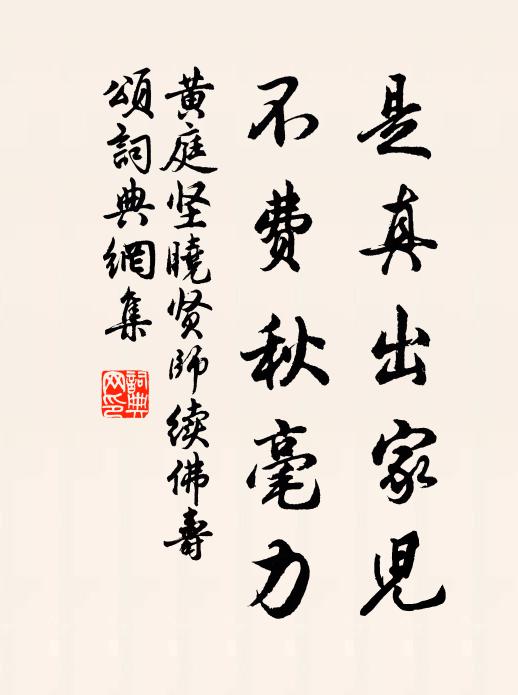 是真出家児
不费秋毫力
黄庭坚曉贤師续佛壽
頌詞典網集
詞典
网印